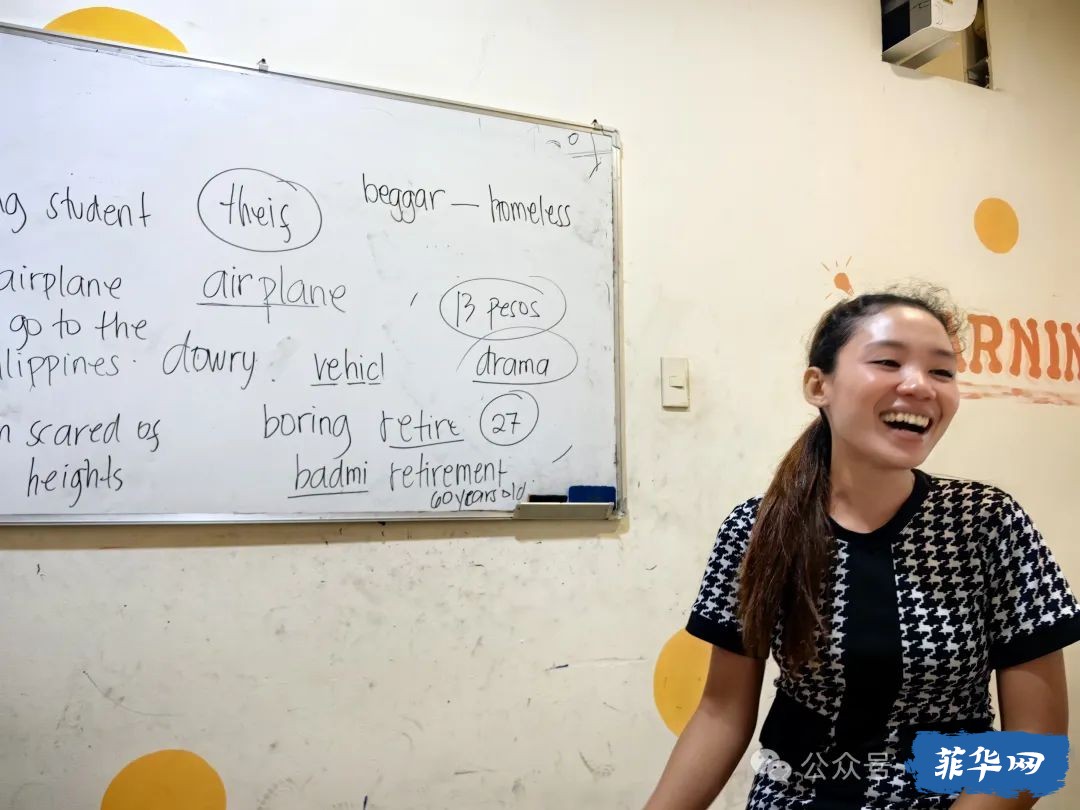 ng student theif beggar – homeless
airplane airplane 13 pesos
go to the
ilippines. dowry. vehicl drama
m scared of boring retire 27
heights badmi retirement
60 years old
ERNIN
公众号
菲华网